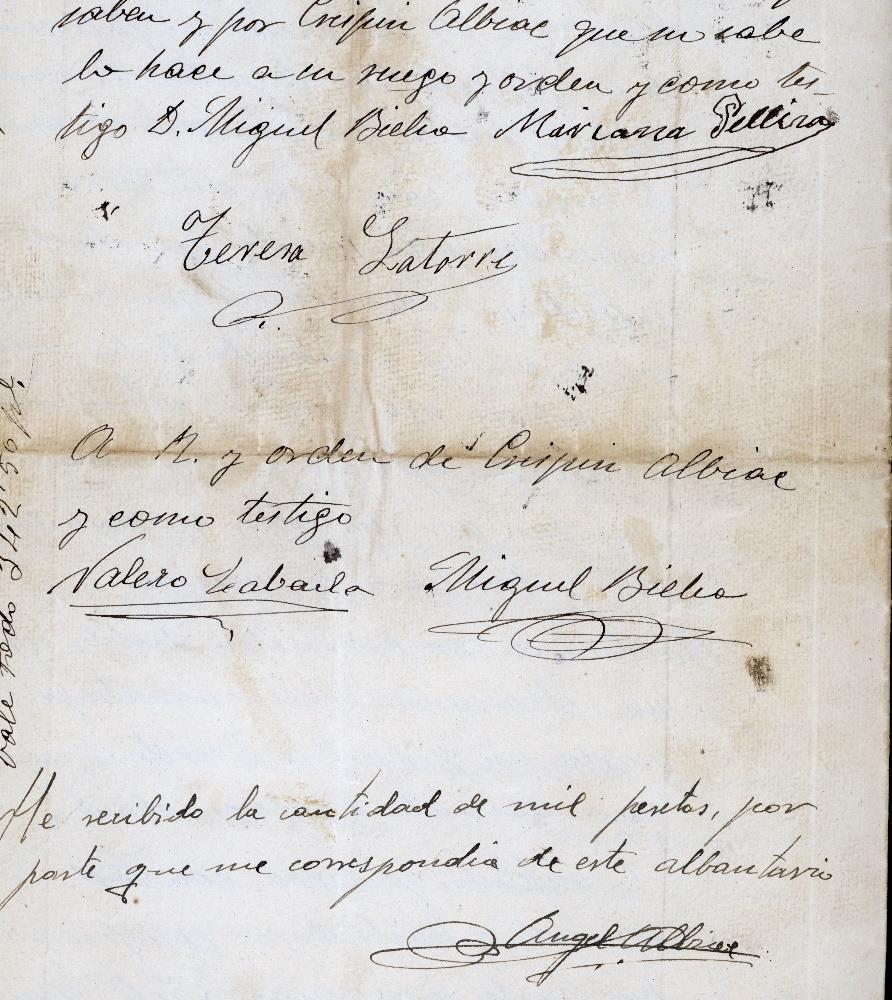 saben y por Crispin Albiac que no sabe
lo hace a su ruego y orden y como tes-
tigo D. Miguel Bielsa Mariana Pellicer
Teresa Latorre
A R. y orden de Crispin Albiac
y como testigo
Valero Labarta Miguel Bielsa
He recibido la cantidad de mil pesetas, por
parte que me correspondia de este albantario
Angel Albiac
vale todo 342'50 pts.